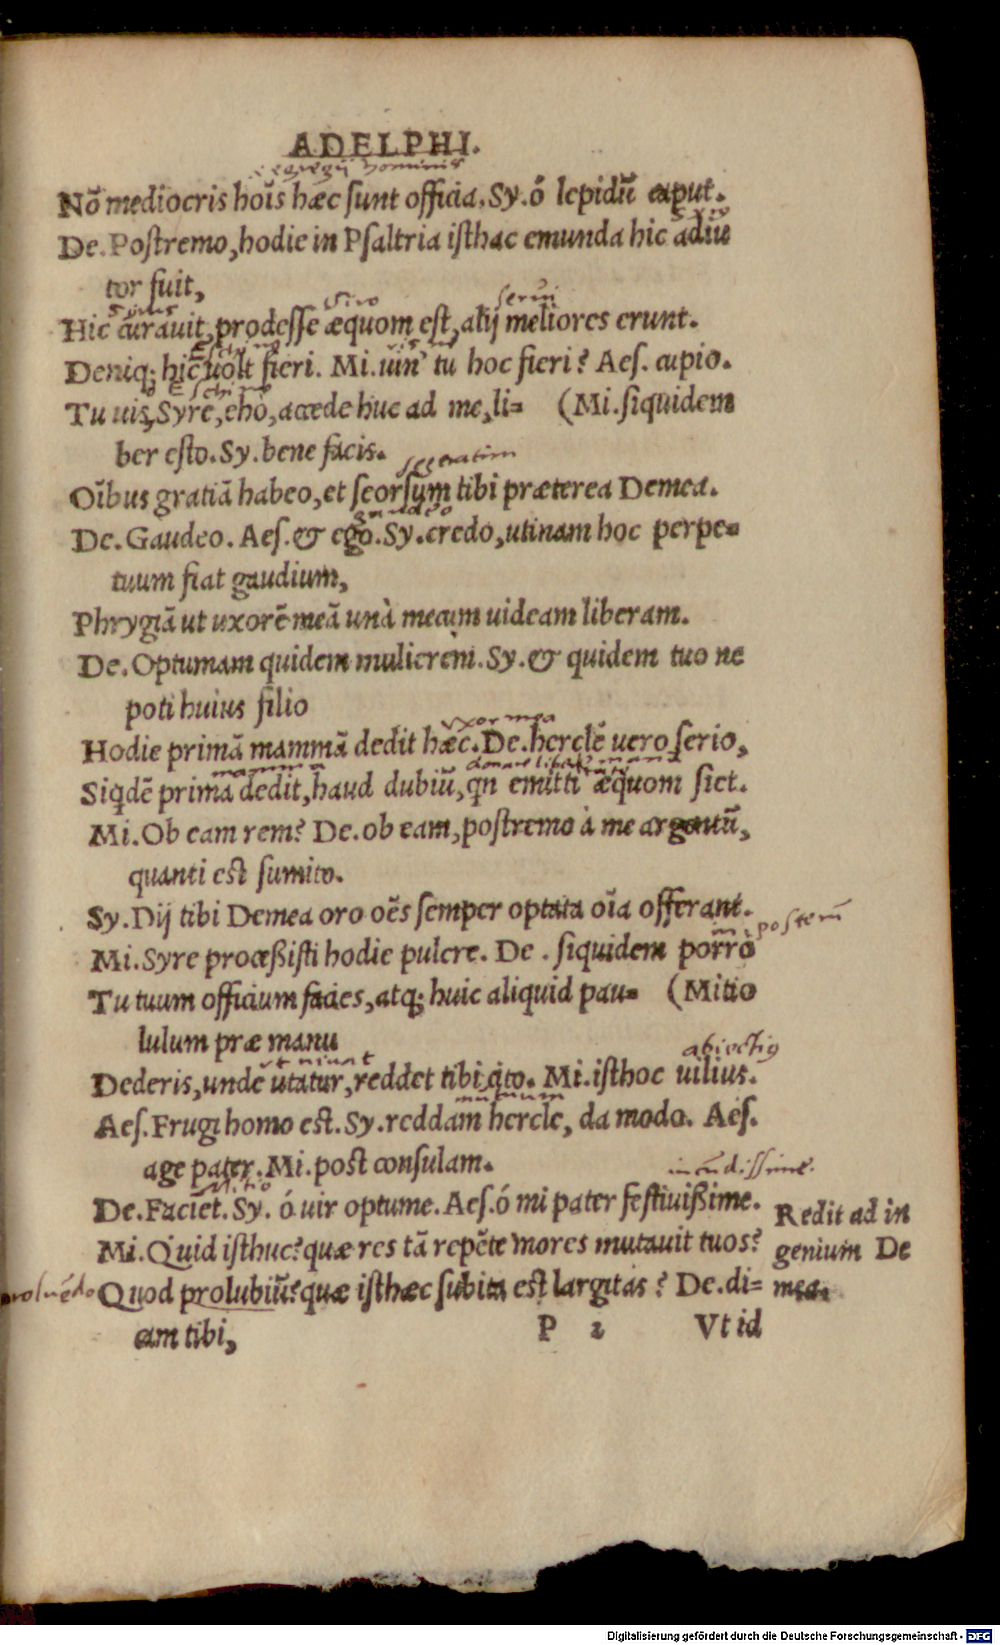 ADELPHI.
egregij hominis
Nõ mediocris hoĩs hæc ſunt officia. Sy. ô lepidũ caput.
De. Poſtremo, hodie in Pſaltria iſthac emunda hic adiu
tor fuit,
Syrus Siro serui
Hic curauit, prodeſſe æquom eſt, alij meliores erunt.
Eschinus
Deniq; hic uolt fieri. Mi. uin' tu hoc fieri? Aeſ. cupio.
Tu uis, Syre, eho, accede huc ad me, li= (Mi. ſiquidem
ber eſto. Sy. bene facis.
Oĩbus gratiã habeo, et ſeorſum tibi præterea Demea.
gaudeo
De. Gaudeo. Aeſ. & ego. Sy. credo, utinam hoc perpe=
tuum fiat gaudium,
Phrygiã ut uxorẽ meã unà mecum uideam liberam.
De. Optumam quidem mulierem. Sy. & quidem tuo ne
poti huius filio
vxor mea
Hodie primã mammã dedit hæc. De. hercle uero ſerio,
mamma
Siqdẽ prima dedit, haud dubiũ, qn emitti æquom ſiet.
Mi. Ob eam rem? De. ob eam, poſtremo à me argentũ,
quanti eſt ſumito.
Sy. Dij tibi Demea oro oẽs ſemper optata oĩa offerant.
in posterũ
Mi. Syre proceßiſti hodie pulcre. De. ſiquidem porrò
Tu tuum officium facies, atq; huic aliquid pau= (Mitio
lulum præ manu
abiectius
Dederis, unde utatur, reddet tibi cito. Mi. iſthoc uilius.
Aeſ. Frugi homo eſt. Sy. reddam hercle, da modo. Aeſ.
age pater. Mi. poſt conſulam.
Mitio iucũdissime.
De. Faciet. Sy. ô uir optume. Aeſ. ô mi pater feſtiuißime.
Redit ad in
genium De
mea.
Mi. Quid iſthuc? quæ res tã repẽte mores mutauit tuos?
Quod prolubiũ? quæ iſthæc ſubita eſt largitas? De. di=
am tibi,
P 2 Vt id
Digitalisierung gefördert durch die Deutsche Forschungsgemeinschaft - DFG